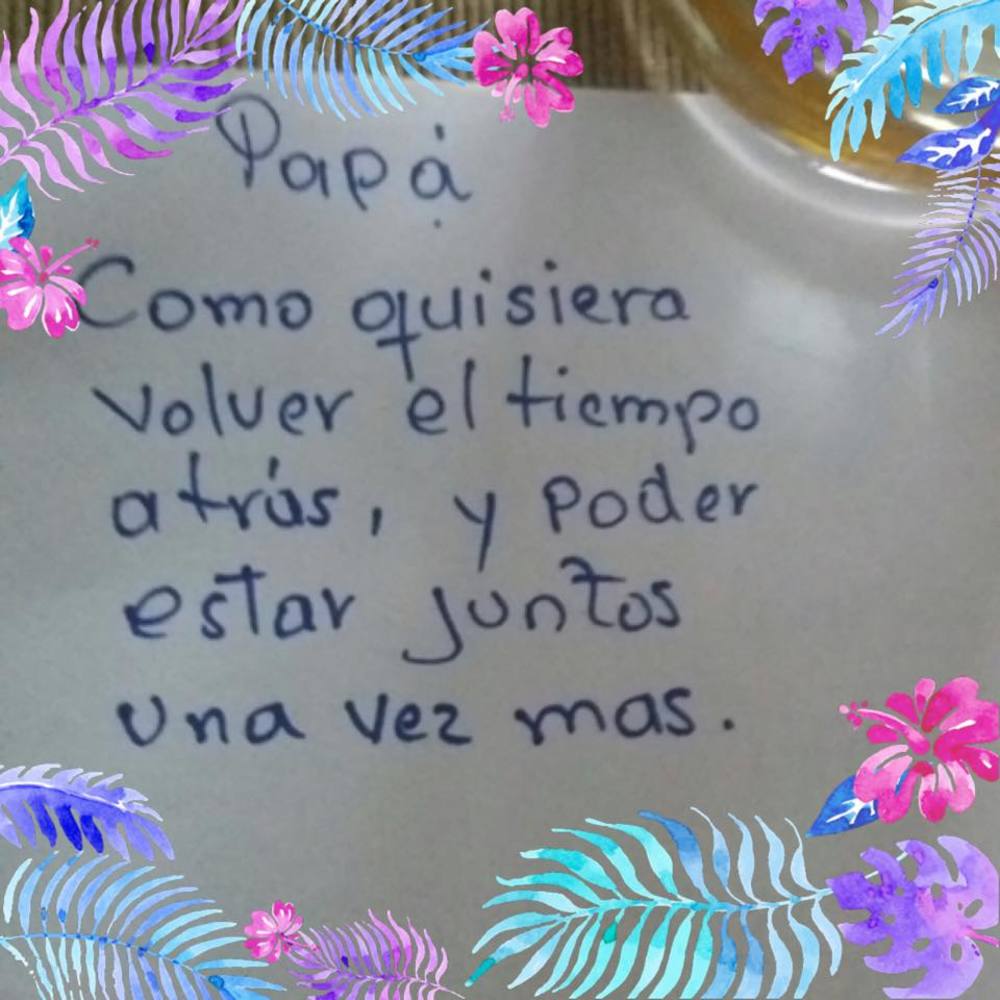 Papá
Como quisiera
volver el tiempo
atrás, y poder
estar juntos
una vez mas.